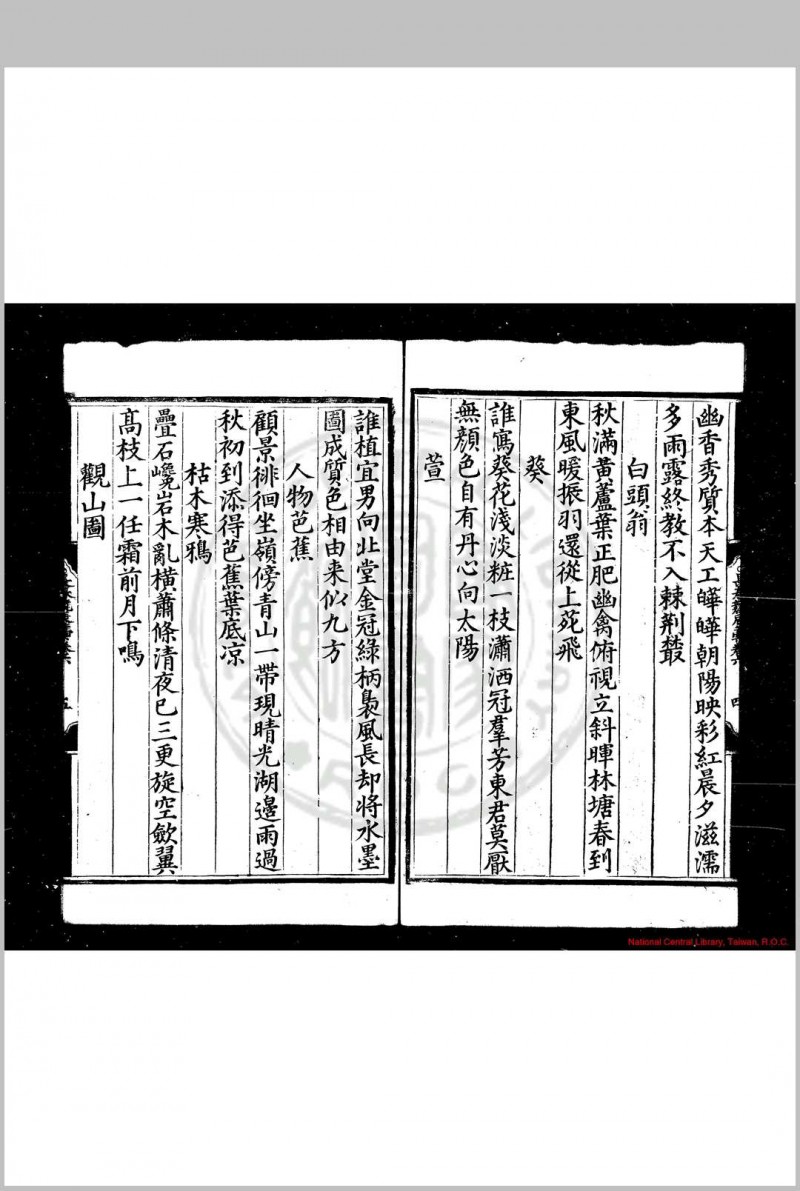 幽香秀質本天工皣皣朝陽映彩紅晨夕滋濡
多雨露終教不入棘荆叢
白頭翁
秋滿黄蘆葉正肥幽禽俯視立斜暉林塘春到
東風暖振羽還從上苑飛
葵
誰寫葵花淺淡粧一枝瀟洒冠羣芳東君莫厭
無顔色自有丹心向太陽
萱
四
誰植宜男向北堂金冠綠柄裊風長却將水墨
圖成質色相由来似九方
人物芭蕉
顧景徘徊坐嶺傍青山一帶現晴光湖邊雨過
秋初到添得芭蕉葉底凉
枯木寒鴉
疊石巉岩木亂橫蕭條清夜已三更旋空歛翼
髙枝上一任霜前月下鳴
觀山圖
五
National Central Library, Taiwan, R.O.C.